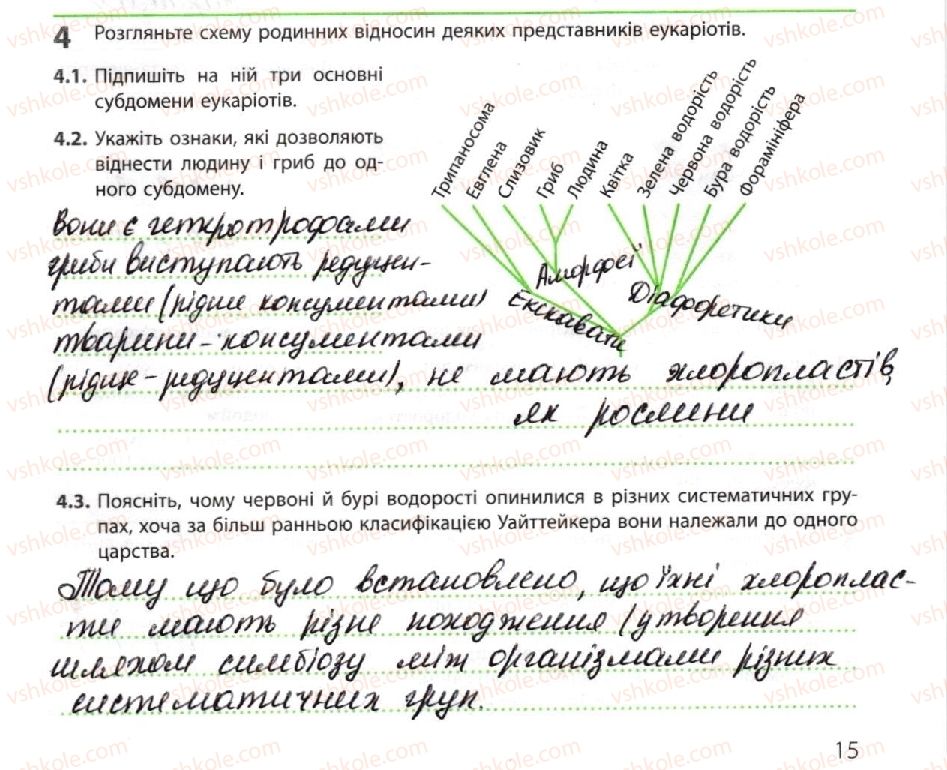 4 Розгляньте схему родинних відносин деяких представників еукаріотів.
4.1. Підпишіть на ній три основні
субдомени еукаріотів.
4.2. Укажіть ознаки, які дозволяють
віднести людину і гриб до од-
ного субдомену.
Трипаносома
Евглена
Слизовик
Гриб
Людина
Квітка
Зелена водорість
Червона водорість
Бура водорість
Форамініфера
Аморфеї
Екскавати
Діафоретики
Вони є гетеротрофами
гриби виступають редуцен-
тами (рідше консументами)
тварини - консументами
(рідше - редуцентами), не мають хлоропластів,
як рослини
4.3. Поясніть, чому червоні й бурі водорості опинилися в різних систематичних гру-
пах, хоча за більш ранньою класифікацією Уайттейкера вони належали до одного
царства.
Тому що було встановлено, що їхні хлороплас-
ти мають різне походження (утворення
шляхом симбіозу між організмами різних
систематичних груп.
15
vshkole.com